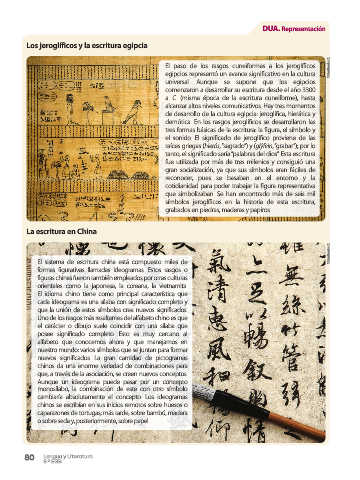 DUA. Representación
Los jeroglíficos y la escritura egipcia
El paso de los rasgos cuneiformes a los jeroglíficos
egipcios representó un avance significativo en la cultura
universal. Aunque se supone que los egipcios
comenzaron a desarrollar su escritura desde el año 3300
a. C. (misma época de la escritura cuneiforme), hasta
alcanzar altos niveles comunicativos. Hay tres momentos
de desarrollo de la cultura egipcia: jeroglífica, hierática y
demótica. En los rasgos jeroglíficos se desarrollaron las
tres formas básicas de la escritura: la figura, el símbolo y
el sonido. El significado de jeroglífico proviene de las
raíces griegas (hierós, "sagrado") y (glýfein, "grabar"); por lo
tanto, el significado sería "palabras del dios". Esta escritura
fue utilizada por más de tres milenios y consiguió una
gran socialización, ya que sus símbolos eran fáciles de
reconocer, pues se basaban en el entorno y la
cotidianidad para poder trabajar la figura representativa
que simbolizaban. Se han encontrado más de seis mil
símbolos jeroglíficos en la historia de esta escritura,
grabados en piedras, maderas y papiros.
La escritura en China
El sistema de escritura china está compuesto miles de
formas figurativas llamadas ideogramas. Estos rasgos o
figuras chinas fueron también empleados por otras culturas
orientales como la japonesa, la coreana, la vietnamita.
El idioma chino tiene como principal característica que
cada ideograma es una sílaba con significado completo y
que la unión de estos símbolos crea nuevos significados.
Uno de los rasgos más resaltantes del alfabeto chino es que
el carácter o dibujo suele coincidir con una sílaba que
posee significado completo. Esto es muy cercano al
alfabeto que conocemos ahora y que manejamos en
nuestro mundo: varios símbolos que se juntan para formar
nuevos significados. La gran cantidad de pictogramas
chinos da una enorme variedad de combinaciones para
que, a través de la asociación, se creen nuevos conceptos.
Aunque un ideograma puede pasar por un concepto
monosílabo, la combinación de este con otro símbolo
cambiaría absolutamente el concepto. Los ideogramas
chinos se escribían en sus inicios remotos sobre huesos o
caparazones de tortugas; más tarde, sobre bambú, madera
o sobre seda y, posteriormente, sobre papel.
80
Lengua y Literatura